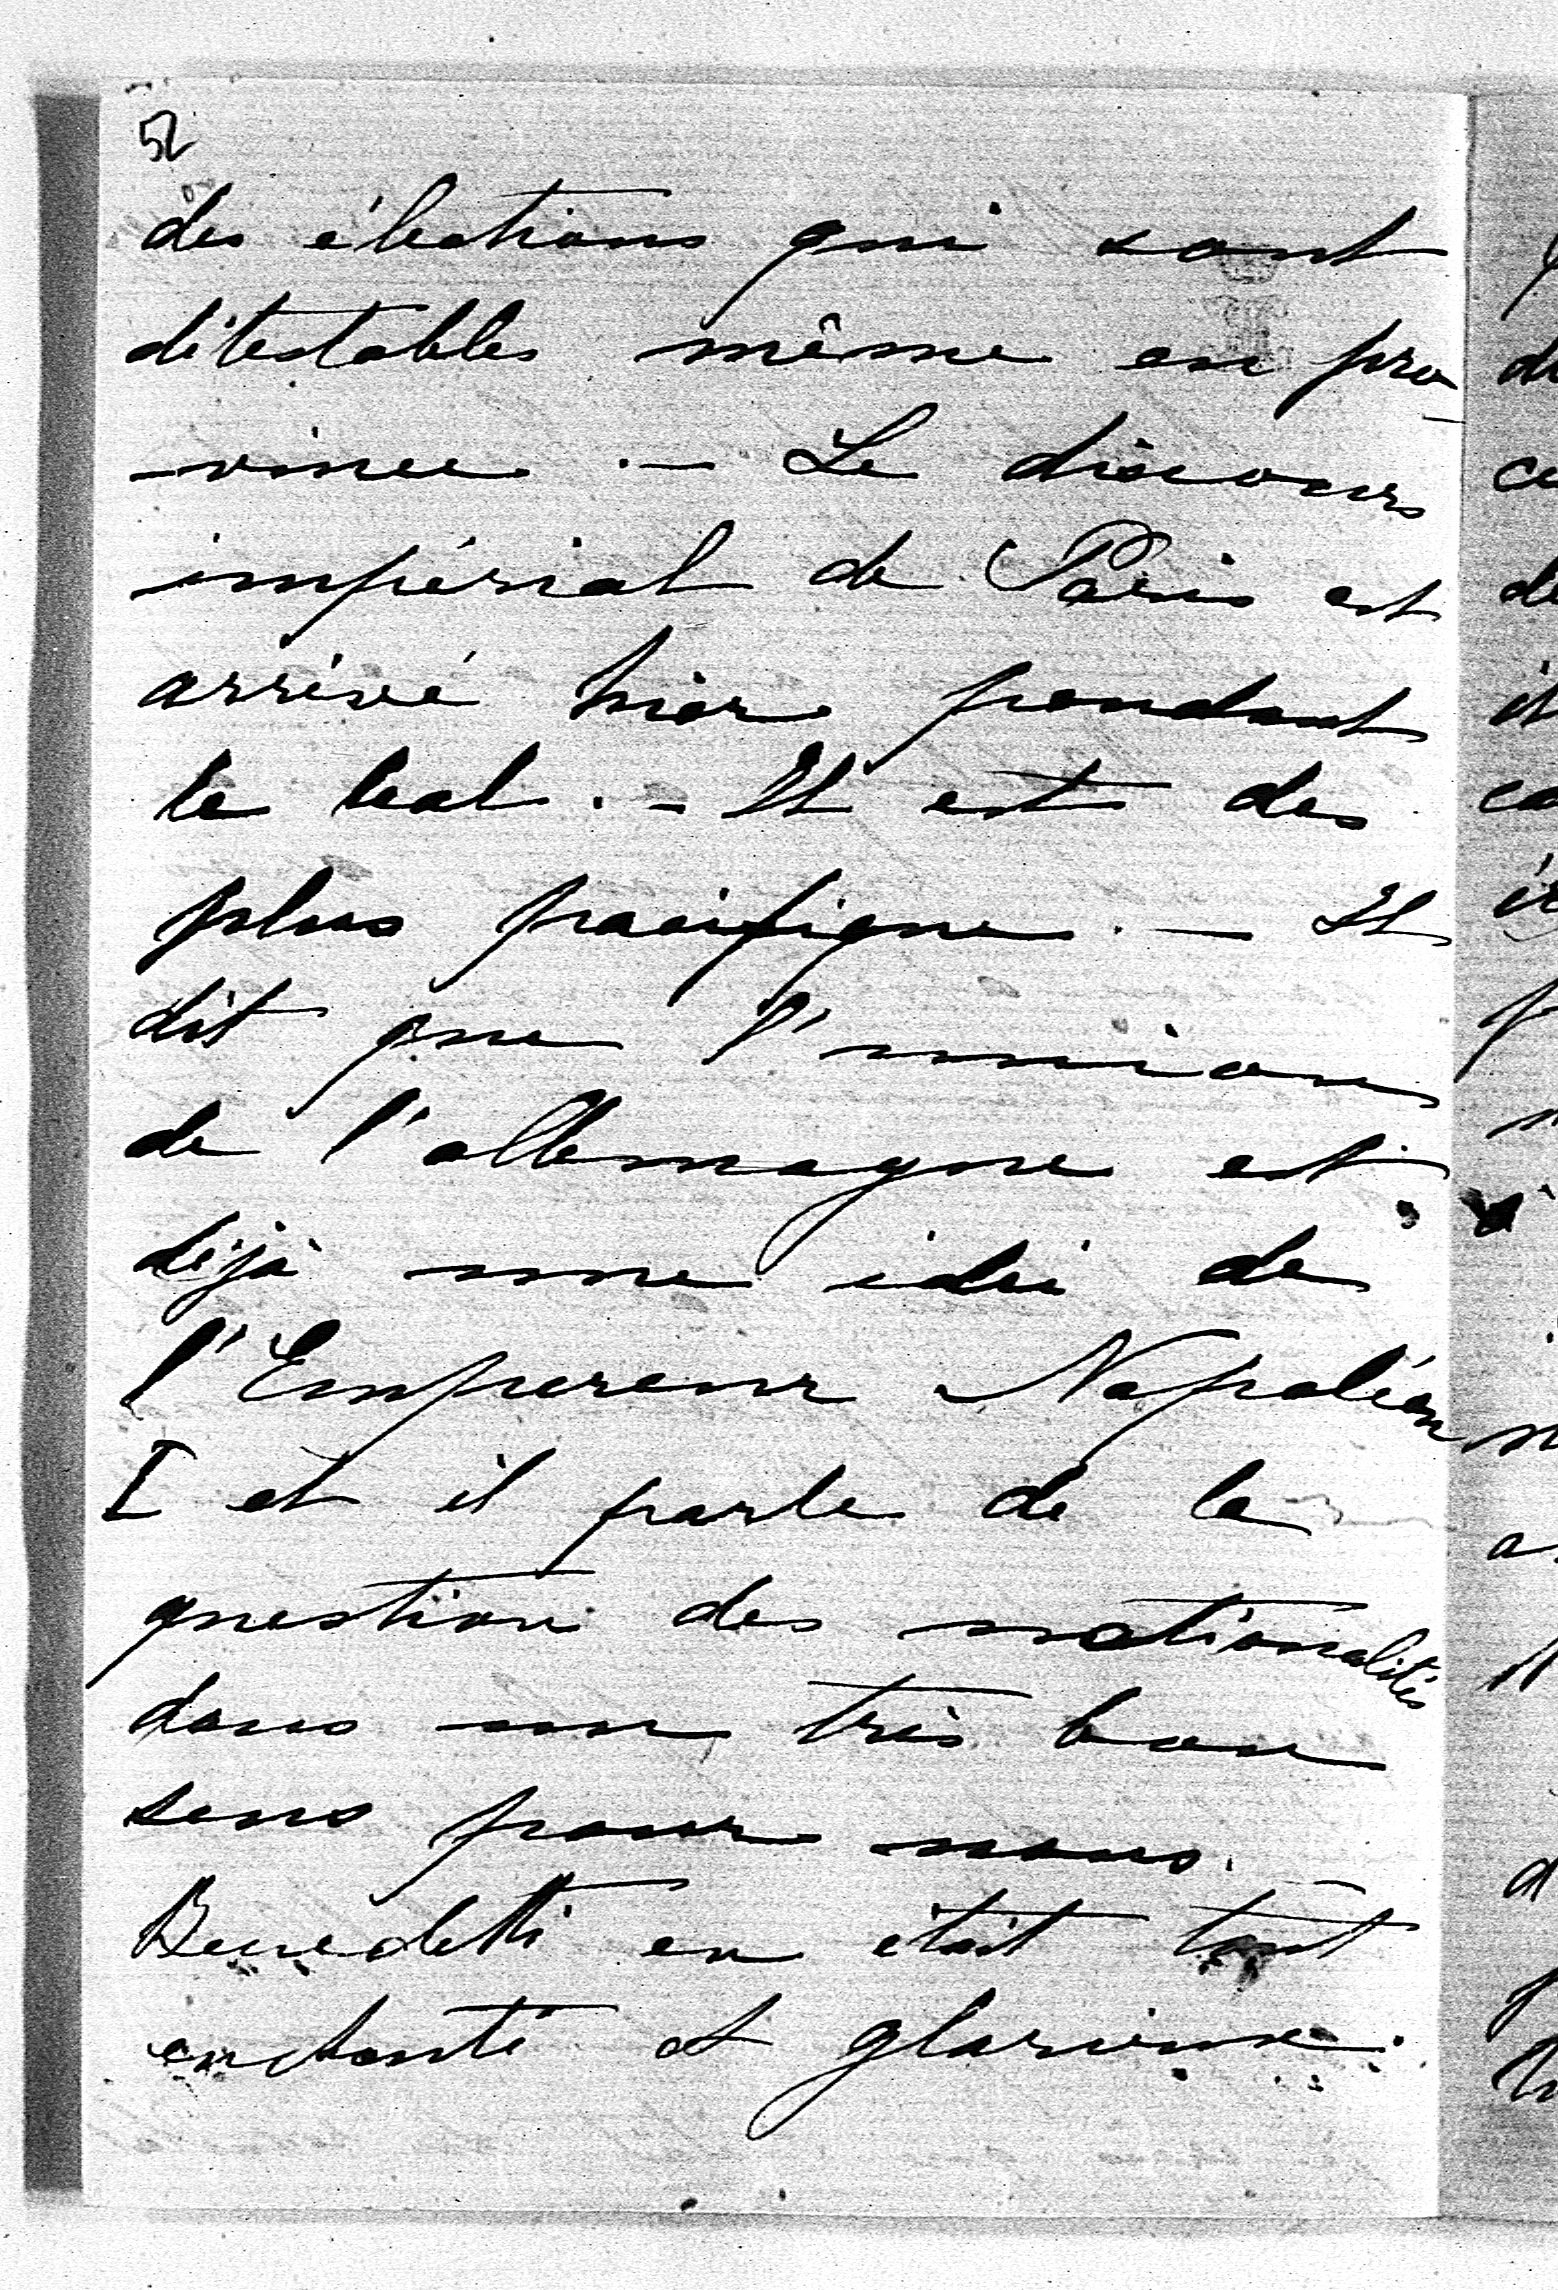 52
des élections qui sont
détestables même en pro-
-vince. — Le discours
impérial de Paris est
arrivé hier pendant
le bal. - Il est des
plus pacifique. — Il
dit que l'union
de l'allemagne est
déjà une idée de
l'Empereur Napoléon
I et il parle de la
question des nationalités
dans un très bon
sens pour nous.
Benedetti en était tout
enchanté et glorieux.